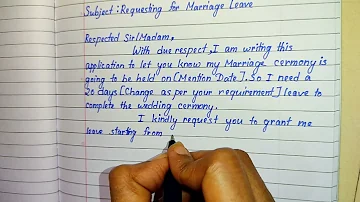 Subject:Requesting for Marriage Leave
Respected Sir/Madam,
With due respect, I am writing this
application to let you know my Marriage cermony is
going to be held on [Mention Date]. So I need a
20 days [Change as per your requirement] leave to
complete the wedding cermony.
I kindly request you to grant me
leave starting from